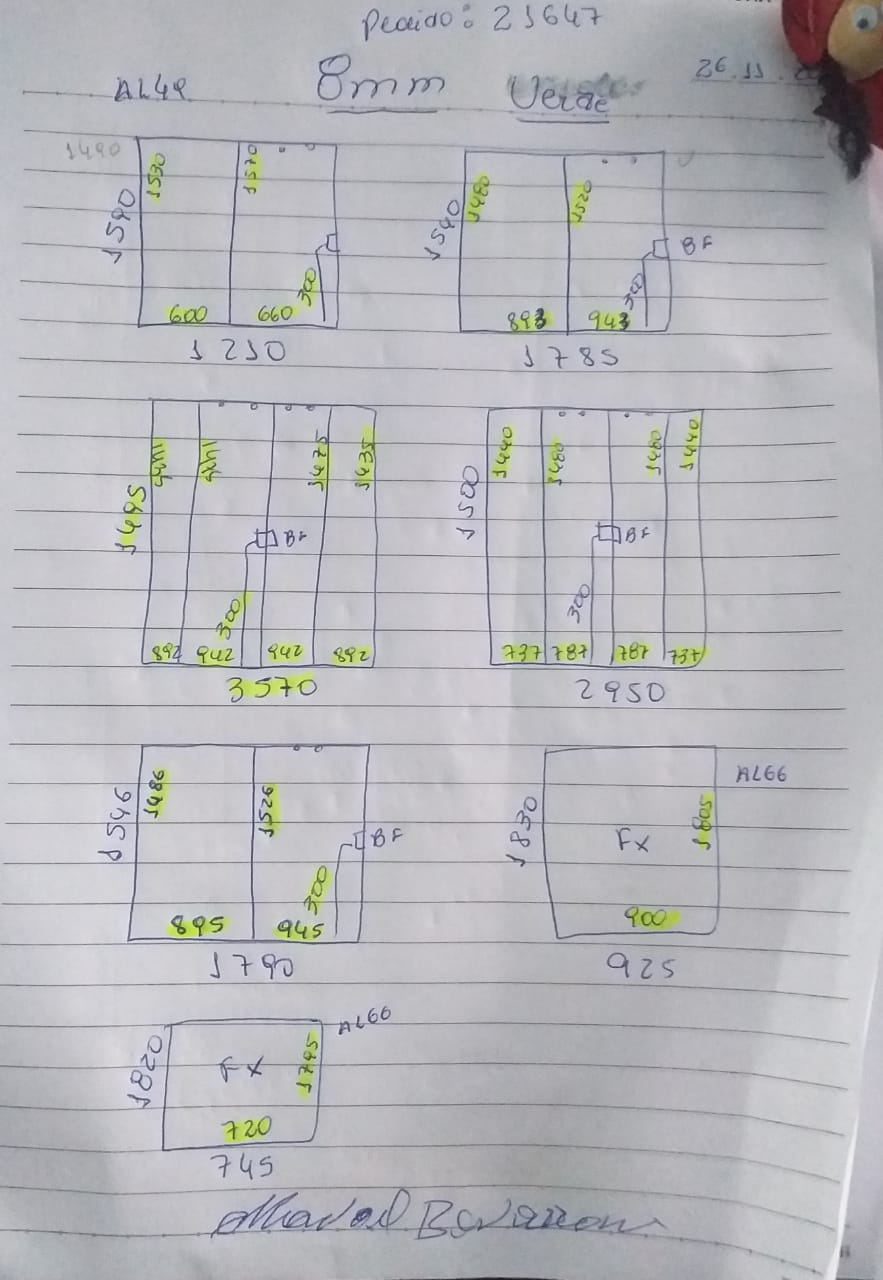 Pedido: 21647
26.11
AL49 8mm Verde
1490
1590 1530 1570 300
600 660
1210
1540 1480 1520 300 BF
893 943
1785
1495 1475 1435 BF 300
892 942 942 892
3570
1500 1440 1480 1480 1440 BF 300
737 787 787 737
2950
1546 1486 1526 300 BF
895 945
1790
1830 Fx 1805 AL66
900
925
1820 Fx 1795 AL66
720
745